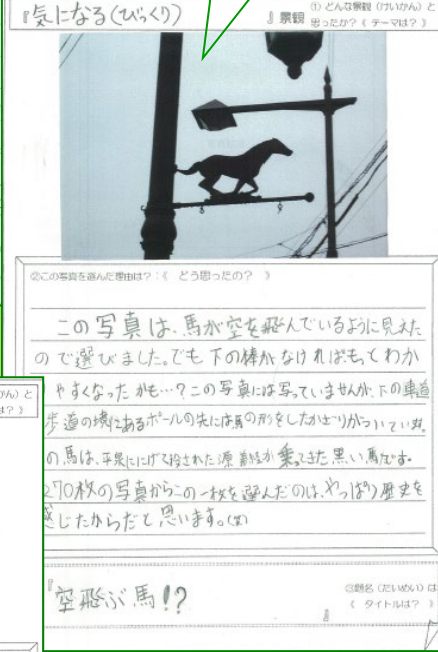 『気になる(びっくり)
』景観
① どんな景観(けいかん)と
思ったか?《 テーマは? 》
②この写真を選んだ理由は?:《 どう思ったの? 》
この写真は、馬が空を飛んでいるように見えた
ので選びました。でも下の棒がなければもっとわか
やすくなったかも…?この写真には写っていませんが、下の車道
歩道の境にあるポールの先には馬の形をしたかざりがついています。
の馬は、平泉ににげて殺された源義経が乗ってきた黒い馬です。
270枚の写真からこの一枚を選んだのは、やっぱり歴史を
感じたからだと思います。(笑)
かん)と
は? 》
『空飛ぶ馬!?
』
③題名(だいめい)は
《 タイトルは? 》